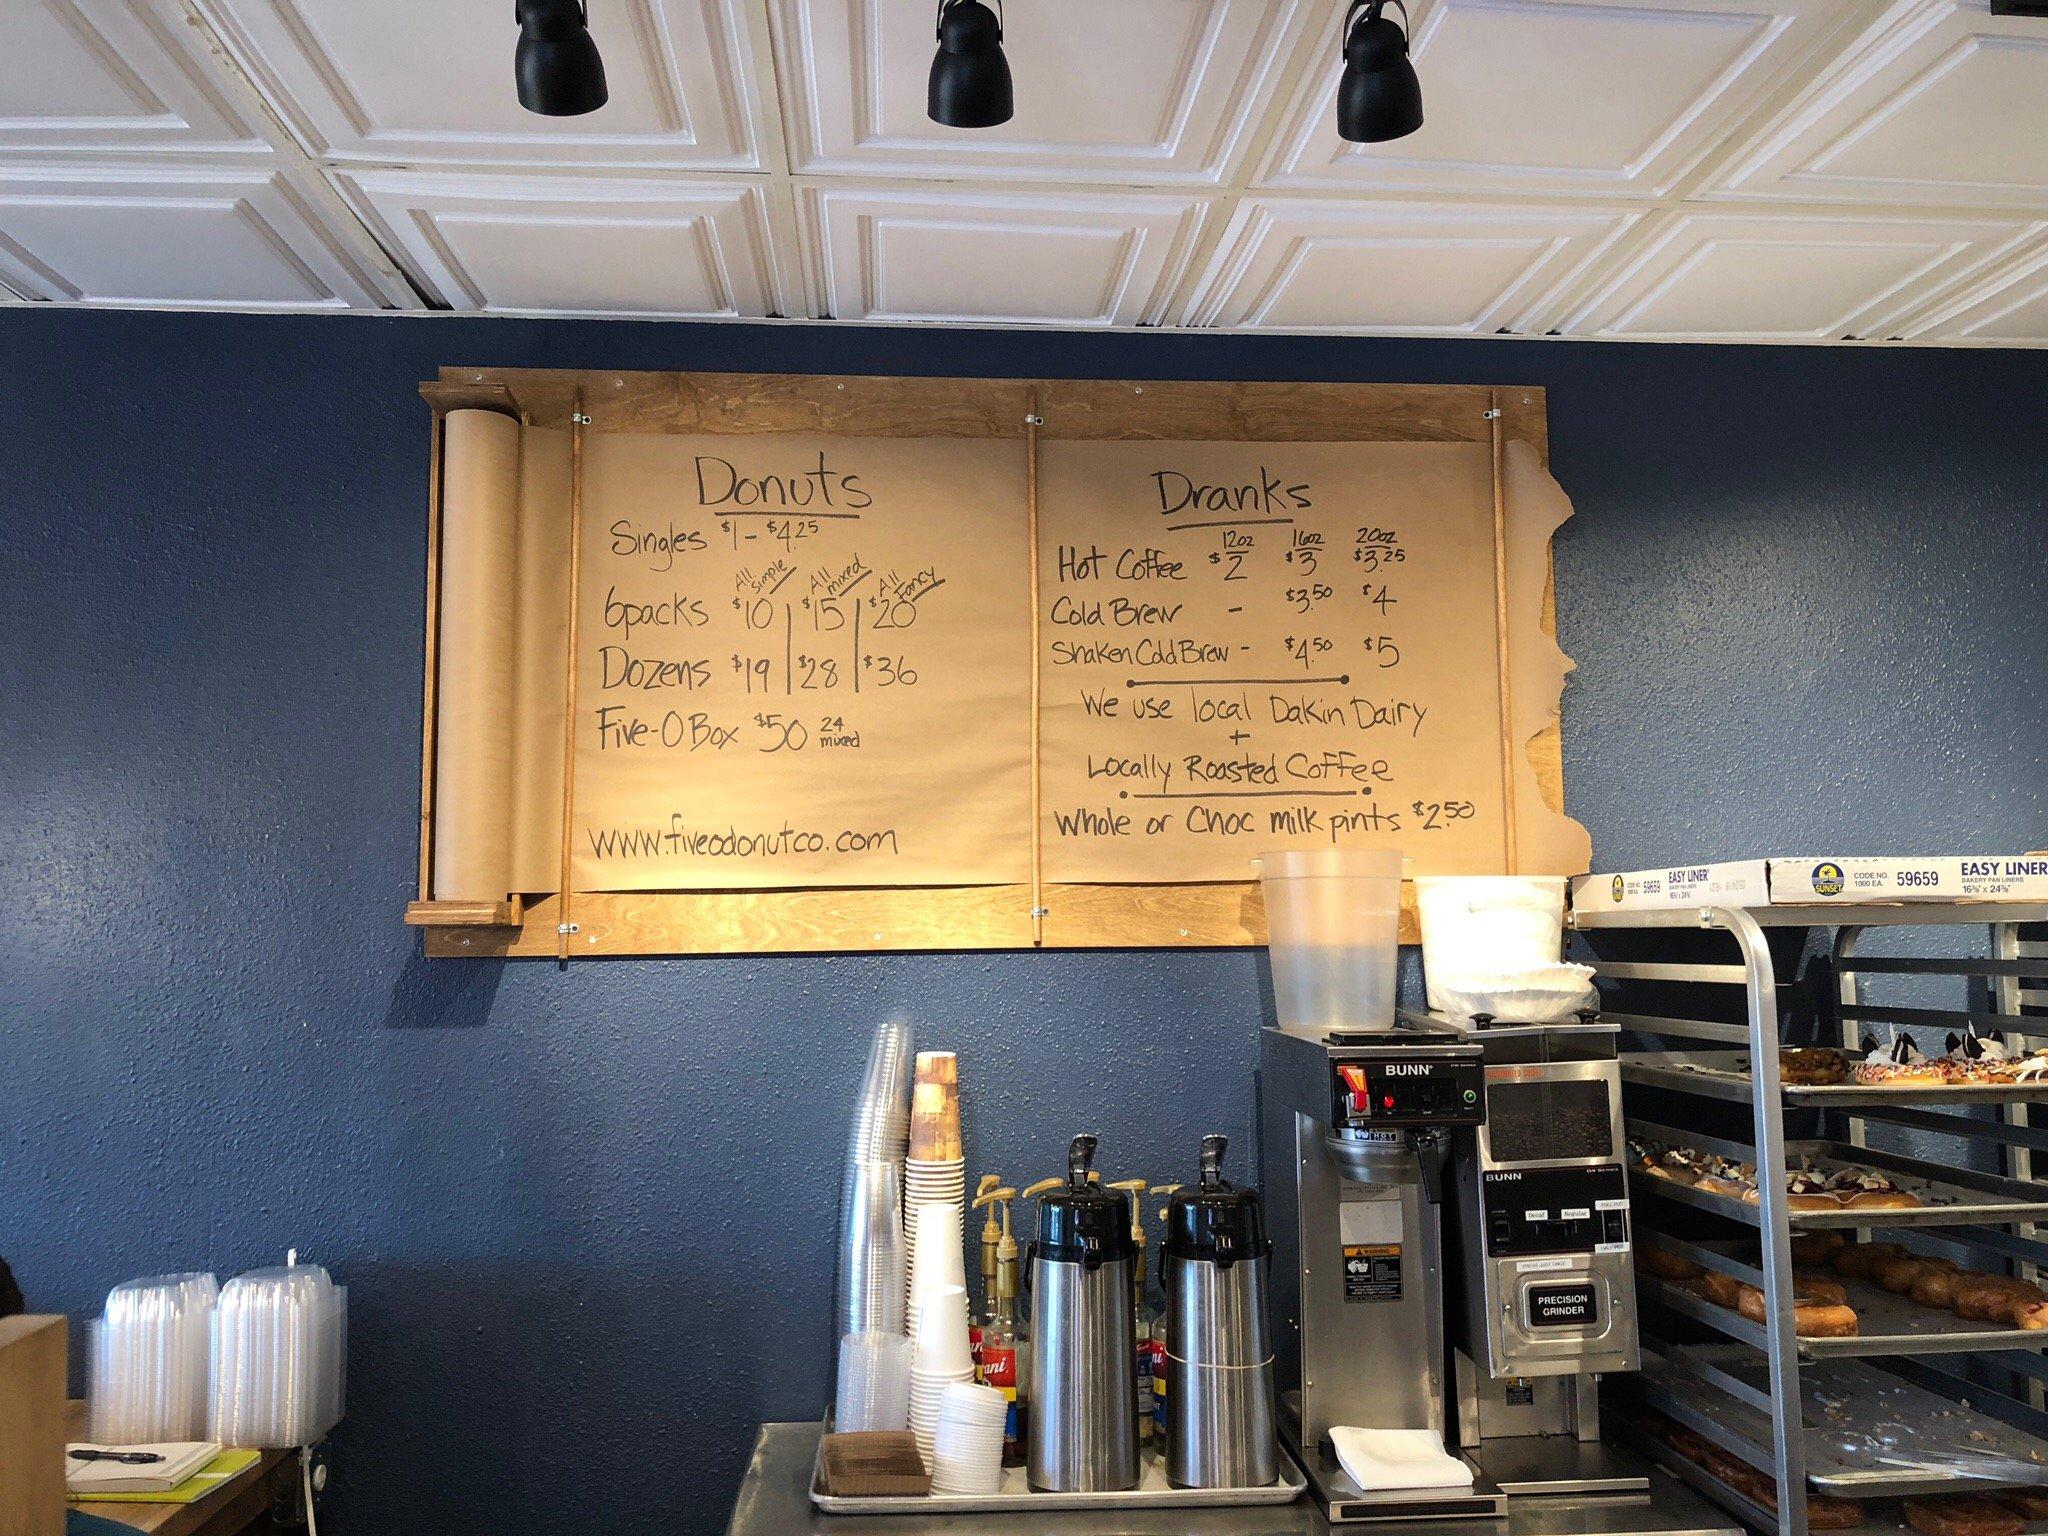 Donuts
Singles $1 - $4.25
All Simple All mixed All Fancy
6packs $10 $15 $20
Dozens $19 $28 $36
Five-O Box $50 24 mixed
www.fiveodonutco.com
Dranks
12oz 16oz 20oz
Hot Coffee $2 $3 $3.25
Cold Brew - $3.50 $4
Shaken Cold Brew - $4.50 $5
We use local Dakin Dairy
+
Locally Roasted Coffee
Whole or Choc milk pints $2.50
59659 EASY LINER
BAKERY PAN LINERS
SUNSET
CODE NO. 59659 EASY LINER
1000 EA. BAKERY PAN LINERS
16⅜" x 24⅜"
BUNN
BUNN
Decaf Regular
PRESS JUST ONCE
PRECISION
GRINDER
WARNING